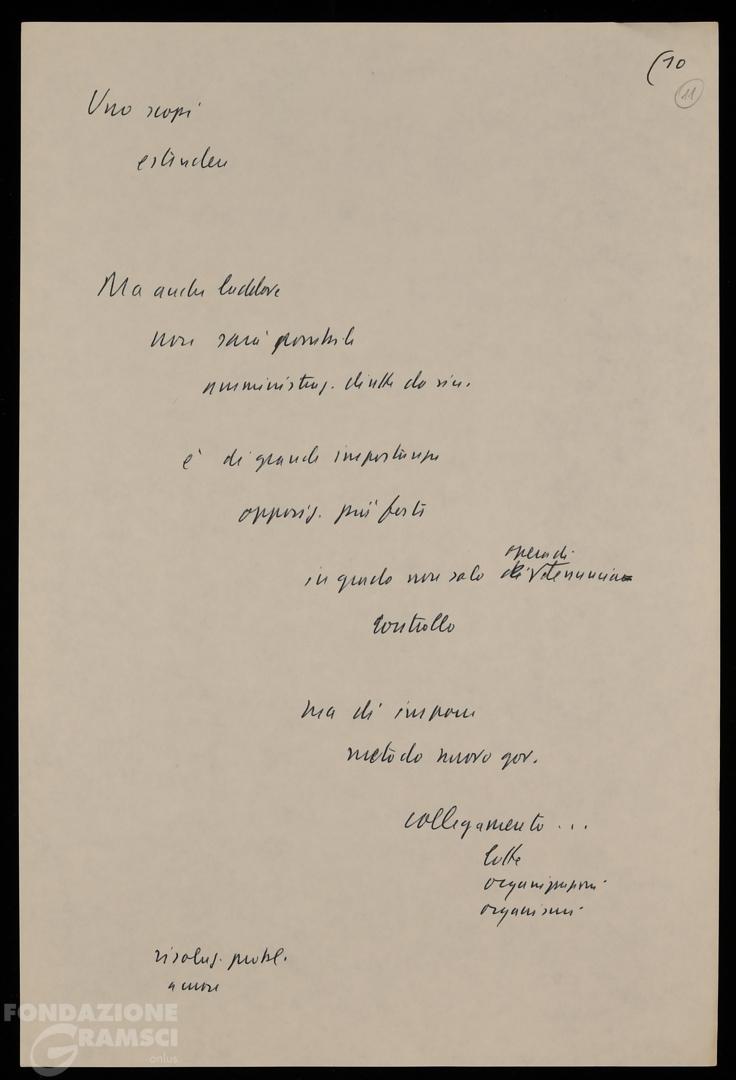 (10
11
Uno scopi
estendere
Ma anche laddove
non sarà possibile
amministraz. dirette da sin.
è di grande importanza
opposiz. più forti
in grado non solo opera di
di denuncia
controllo
ma di imporre
metodo nuovo gov.
collegamento ...
lotte
organizzazioni
organismi
risoluz. probl.
FONDAZIONE
GRAMSCI
onlus